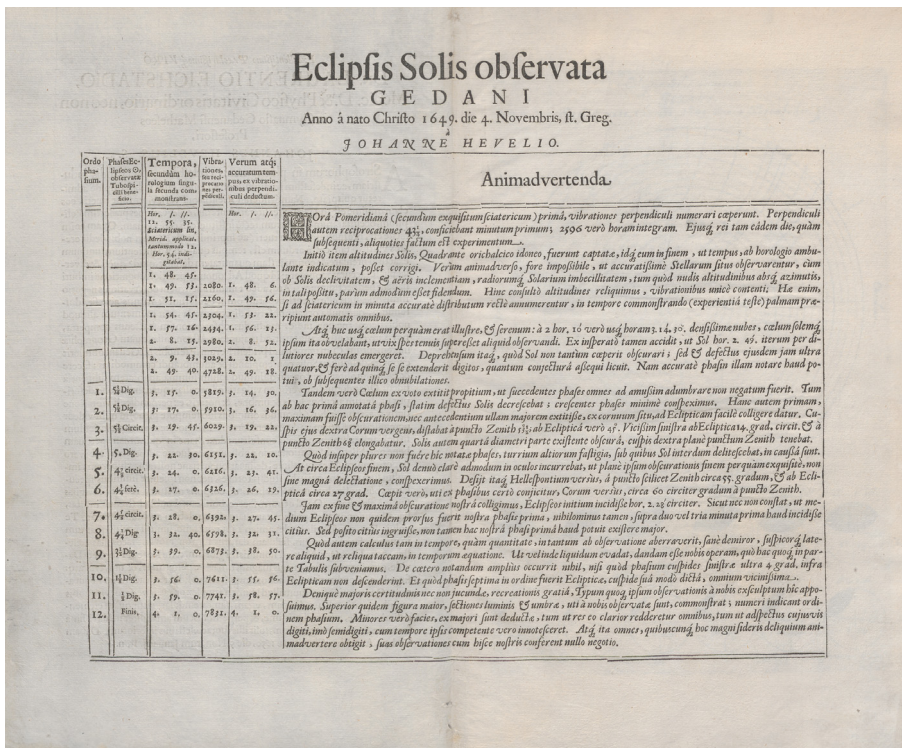 Eclipſis Solis obſervata
GEDANI
Anno â nato Chriſto 1649. die 4. Novembris, ſt. Greg.
à
JOHANNE HEVELIO.
Ordo phaſium.
Phaſes Eclipſeos ☉, obſervatæ Tuboſpicilli beneficio.
Tempora, ſecundùm horologium ſingula ſecunda commonſtrans.
Vibrationes, ſeu reciprocationes perpendiculi.
Verum atq; accuratum tempus, ex vibrationibus perpendiculi deductum.
Animadvertenda.
Hor. /. //.
12. 55. 35.
Sciatericum lin, Merid. applicat. tantummodo 12. Hor. 54. indigitabat.
Hor. /. //.
1. 48. 45.
1. 49. 53. 2080. 1. 48. 6.
1. 51. 15. 2160. 1. 49. 56.
1. 54. 45. 2304. 1. 53. 22.
1. 57. 16. 2434. 1. 56. 13.
2. 8. 15. 2980. 2. 8. 52.
2. 9. 43. 3029. 2. 10. 1.
2. 49. 40. 4728. 2. 49. 18.
1. 5¼ Dig. 3. 15. 0. 5819. 3. 14. 30.
2. 5¼ Dig. 3. 17. 0. 5910. 3. 16. 36.
3. Circit. 3. 19. 45. 6029. 3. 19. 22.
4. 5. Dig. 3. 22. 30. 6151. 3. 22. 10.
5. circit. 3. 24. 0. 6216. 3. 23. 41.
6. ferè. 3. 27. 0. 6326. 3. 26. 19.
7. circit. 3. 28. 0. 6392. 3. 27. 45.
8. Dig 3. 32. 40. 6598. 3. 32. 31.
9. Dig. 3. 39. 0. 6873. 3. 38. 50.
10. Dig. 3. 56. 0. 7611. 3. 55. 56.
11. Dig. 3. 59. 0. 7741. 3. 58. 57.
12. Finis, 4. 1. 0. 7831. 4. 1. 0.
HOrâ Pomeridianâ (ſecundùm exquiſitum ſciatericum) primâ, vibrationes perpendiculi numerari cœperunt. Perpendiculi
autem reciprocationes 43¼, conficiebant minutum primum; 2596 verò horam integram. Ejusq́; rei tam eâdem die, quàm
ſubſequenti, aliquoties factum eſt experimentum.
Initiò item altitudines Solis, Quadrante orichalcico idoneo, fuerunt captatæ, idq́; eum in finem, ut tempus, ab horologio ambu-
lante indicatum, poſſet corrigi. Verùm animadverſo, fore impoſſibile, ut accuratiſſimè Stellarum ſitus obſervarentur, cùm
ob Solis declivitatem, & aëris inclementiam, radiorumq́; Solarium imbecillitatem, tum quòd nudis altitudinibus absq́; azimutis,
in tali poſitu, parùm admodum eſſet fidendum. Hinc conſultò altitudines reliquimus, vibrationibus unicè contenti. Hæ enim,
ſi ad ſciatericum in minuta accuratè diſtributum rectè annumerentur, in tempore commonſtrando (experientiâ teſte) palmam præ-
ripiunt automatis omnibus.
Atq́; huc usq́; cœlum perquàm erat illuſtre, & ſerenum: à 2 hor. 10′ verò usq́; horam 3. 14. 30″. denſiſſimæ nubes, cœlum ſolemq́;
ipſum ita obvelabant, ut vix ſpes tenuis ſupereſſet aliquid obſervandi. Ex inſperato tamen accidit, ut Sol hor. 2. 49. iterum per di-
lutiores nubeculas emergeret. Deprehenſum itaq́;, quòd Sol non tantùm cœperit obſcurari; ſed & defectus ejusdem jam ultra
quatuor, & ferè ad quinq́; ſe ſe extenderit digitos, quantum conjecturâ aſſequi licuit. Nam accuratè phaſin illam notare haud po-
tui, ob ſubſequentes illico obnubilationes.
Tandem verò Cœlum ex voto extitit propitium, ut ſuccedentes phaſes omnes ad amuſſim adumbrare non negatum fuerit. Tum
ab hac primâ annotatâ phaſi, ſtatim defectus Solis decreſcebat; creſcentes phaſes minimè conſpeximus. Hanc autem primam,
maximam fuiſſe obſcurationem, nec antecedentium ullam majorem extitiſſe, ex cornuum ſitu, ad Eclipticam facilè colligere datur. Cu-
ſpis ejus dextra Corum vergens, diſtabat à puncto Zenith ab Eclipticâ verò Viciſſim ſiniſtra ab Ecliptica 14. grad. circit. & à
puncto Zenith elongabatur. Solis autem quartâ diametri parte exiſtente obſcurâ, cuſpis dextra planè punctum Zenith tenebat.
Quòd inſuper plures non fuêre hîc notatæ phaſes, turrium altiorum faſtigia, ſub quibus Sol interdum deliteſcebat, in cauſſâ ſunt.
At circa Eclipſeos finem, Sol denuò clarè admodum in oculos incurrebat, ut planè ipſum obſcurationis finem perquàm exquiſitè, non
ſine magnâ delectatione, conſpexerimus. Deſijt itaq́; Helleſpontium verſùs, à puncto ſcilicet Zenith circa 55. gradum, & ab Ecli-
pticâ circa 27 grad. Cœpit verò, uti ex phaſibus certò conjicitur, Corum verſus, circa 60 circiter gradum à puncto Zenith.
Jam ex fine & maximâ obſcuratione noſtrâ colligimus, Eclipſeos initium incidiſſe hor. 2. 28′ circiter. Sicut nec non conſtat, ut me-
dium Eclipſeos non quidem prorſus fuerit noſtra phaſis prima, nihilominus tamen, ſupra duo vel tria minuta prima haud incidiſſe
citiùs. Sed poſito citiùs ingruiſſe, non tamen hac noſtrâ phaſi primâ haud potuit exiſtere major.
Quòd autem calculus tam in tempore, quàm quantitate, in tantum ab obſervatione aberraverit, ſanè demiror, ſuſpicorq́; late-
re aliquid, ut reliqua taceam, in temporum æquatione. Ut vel inde liquidum evadat, dandam eſſe nobis operam, quò hac quoq́; in par-
te Tabulis ſubveniamus. De cætero notandum ampliùs occurrit nihil, niſi quòd phaſium cuſpides ſiniſtræ ultra 4 grad. infra
Eclipticam non deſcenderint. Et quòd phaſis ſeptima in ordine fuerit Eclipticæ, cuſpide ſuâ modò dictâ, omnium viciniſſima.
Denique majoris certitudinis nec non jucundæ, recreationis gratiâ, Typum quoq́; ipſum obſervationis à nobis exſculptum hîc appo-
ſuimus. Superior quidem figura major, ſectiones luminis & umbræ, uti à nobis obſervatæ ſunt, commonſtrat; numeri indicant ordi-
nem phaſium. Minores verò facies, ex majori ſunt deductæ, tum ut res eo clarior redderetur omnibus, tum ut adſpectus cujusvis
digiti, imò ſemidigiti, cum tempore ipſis competente vero innoteſceret. Atq́; ita omnes, quibuscunq́; hoc magni ſideris deliquium ani-
madvertere obtigit, ſuas obſervationes cum hiſce noſtris conferent nullo negotio.